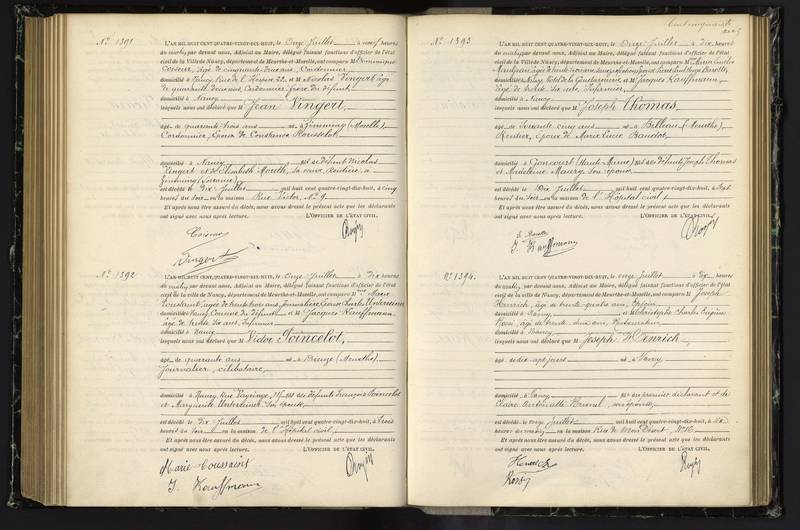 Nº 1391
L'AN MIL HUIT CENT QUATRE-VINGT-DIX-HUIT, le Onze Juillet à neuf heures
du matin, par devant nous, Adjoint au Maire, délégué faisant fonctions d'officier de l'état
civil de la Ville de Nancy, département de Meurthe-et-Moselle, ont comparu M Dominique
âgé de cinquante deux ans, Cordonnier,
domicilié à Nancy, Rue de l' 22, et M Nicolas Vingert, âgé
de quarante deux ans, Cordonnier, frère du défunt,
domicilié à Nancy
lesquels nous ont déclaré que M Jean Vingert,
âgé de quarante trois ans né à Zinming (Moselle),
Cordonnier, Époux de Constance
domicilié à Nancy est de défunt Nicolas
Vingert et d'Élisabeth sa veuve, rentière, à
Zinming (Lorraine)
est décédé le Dix Juillet mil huit cent quatre-vingt-dix-huit, à Cinq
heures du soir en sa maison Rue Nº 9
Et après nous être assuré du décès, nous avons dressé le présent acte que les déclarants
ont signé avec nous après lecture. L'OFFICIER DE L'ÉTAT CIVIL,
Vingert
Nº 1392
L'AN MIL HUIT CENT QUATRE-VINGT-DIX-HUIT, le Onze Juillet à Dix heures
du matin, par devant nous, Adjoint au Maire, délégué faisant fonctions d'officier de l'état
civil de la ville de Nancy, département de Meurthe-et-Moselle, ont comparu M Marie
âgée de trente trois ans, Journalière, Épouse Charles
domiciliée à Nancy, Cousine du défunt et M Jacques Kauffmann,
âgé de trente six ans, Infirmier
domicilié à Nancy
lesquels nous ont déclaré que M Victor Poincelot,
âgé de quarante ans né à (Meurthe),
Journalier, célibataire,
domicilié à Nancy, Rue est de défunts François Poincelot
et Marguerite son épouse,
est décédé le Dix Juillet mil huit cent quatre-vingt-dix-huit, à Trois
heures du soir en sa maison de l'Hôpital civil,
Et après nous être assuré du décès, nous avons dressé le présent acte que les déclarants
ont signé avec nous après lecture. L'OFFICIER DE L'ÉTAT CIVIL,
Marie Toussaint
J. Kauffmann
Nº 1393
L'AN MIL HUIT CENT QUATRE-VINGT-DIX-HUIT, le Onze Juillet à Dix heures
du matin, par devant nous, Adjoint au Maire, délégué faisant fonctions d'officier de l'état
civil de la Ville de Nancy, département de Meurthe-et-Moselle, ont comparu M
domicilié à Nancy, et M Jacques Kauffmann,
âgé de trente six ans, Infirmier,
domicilié à Nancy
lesquels nous ont déclaré que M Joseph Thomas,
âgé de Soixante cinq ans né à Belleau (Meurthe),
Rentier, Époux de Marie Lucie Baudot,
domicilié à Goncourt (Haute Marne) est de défunts Joseph Thomas
et Madeleine Maury, son épouse,
est décédé le Dix Juillet mil huit cent quatre-vingt-dix-huit, à Sept
heures du soir en sa maison de l'Hôpital civil,
Et après nous être assuré du décès, nous avons dressé le présent acte que les déclarants
ont signé avec nous après lecture. L'OFFICIER DE L'ÉTAT CIVIL,
J. Kauffmann
Nº 1394.
L'AN MIL HUIT CENT QUATRE-VINGT-DIX-HUIT, le onze Juillet à Dix heures
du matin, par devant nous, Adjoint au Maire, délégué faisant fonctions d'officier de l'état
civil de la ville de Nancy, département de Meurthe-et-Moselle, ont comparu M Joseph
Henrich, âgé de trente quatre ans,
domicilié à Nancy et M Christophe Charles Eugène
âgé de trente deux ans,
domicilié à Nancy,
lesquels nous ont déclaré que M Joseph Henrich
âgé de dix sept jours né à Nancy
domicilié à Nancy fils du premier déclarant et de
Claire Antoinette son épouse,
est décédé le onze Juillet mil huit cent quatre-vingt-dix-huit, à six
heures du matin, en sa maison Rue de Mon Désert, Nº
Et après nous être assuré du décès, nous avons dressé le présent acte que les déclarants
ont signé avec nous après lecture. L'OFFICIER DE L'ÉTAT CIVIL,